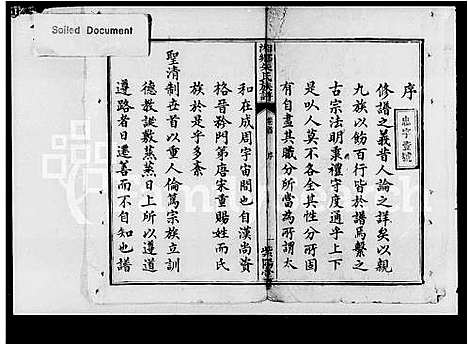 Soiled Document
忠字壹號
序
修譜之義昔人論之詳矣以親
九族以飭百行皆於譜焉繫之
古宗法明秉禮守度通乎上下
是以人莫不各全其性分所固
有自盡其職分所當為所謂太
湘鄉朱氏族譜
卷首
序
紫陽堂
和在成周宇宙間也自漢尚資
格晉矜門第唐宋重賜姓而氏
族於是乎多紊
聖清制世首以重人倫篤宗族立訓
德教誕敷蒸蒸日上所以遵道
遵路者日遷善而不自知也譜